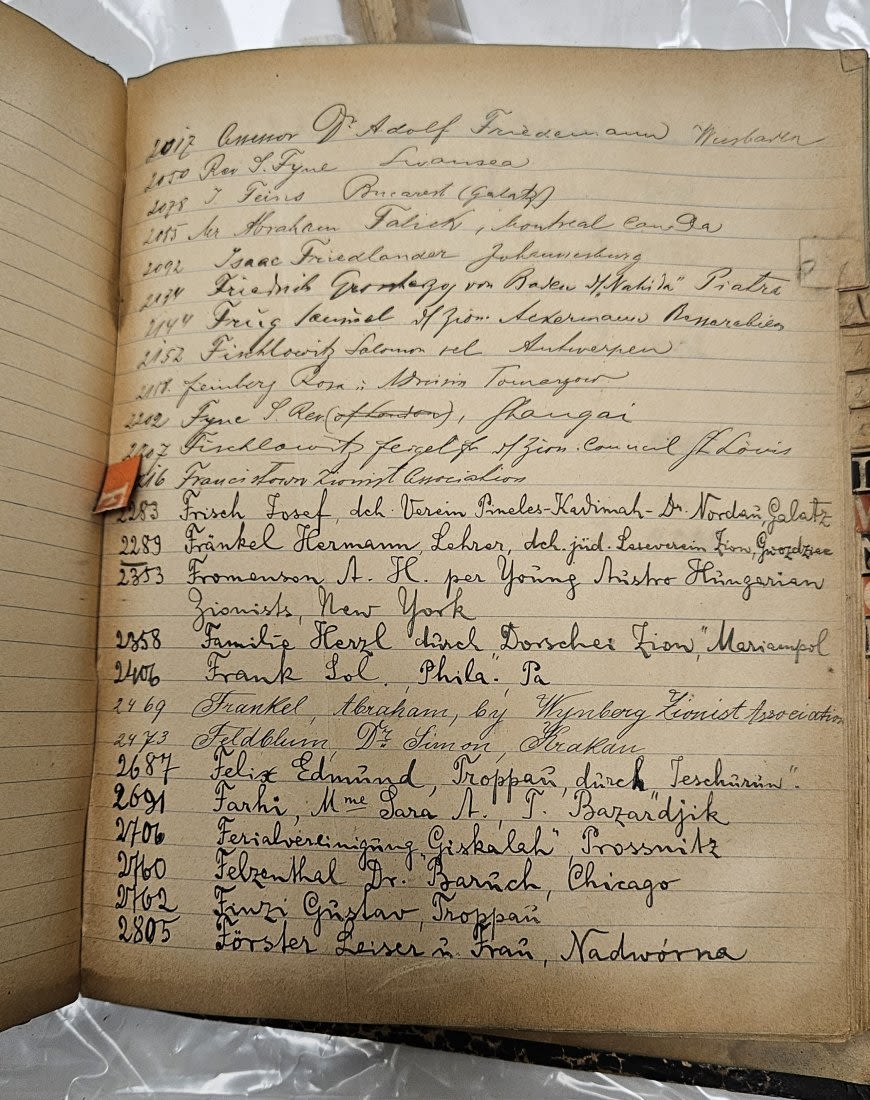 2017 Assessor Dr Adolf Friedemann Wiesbaden
2050 Rev S. Fyne Swansea
2078 J Feins Bucarest (Galatz)
2085 Mr Abraham Falick, Montreal Canada
2092 Isaac Friedlander Johannesburg
2134 Friedrich Grossherzog von Baden d/ „Nahida" Piatra
2144 Frug d/ Zion. Ackermann Bessarabien
2152 Fischlowitz Salomon Antwerpen
Feinberg Rosa Tomaszow
2202 Fyne S. Rev (of London), Shangai
2207 Fischlowitz d/ Zion. Council St Louis
216 Francistown Zionist Association
2283 Frisch Josef, dch. Verein Pineles-Kadimah-Dr. Nordau, Galatz
2289 Fränkel Hermann, Lehrer, dch. jüd. Leseverein Zion,
2353 Fromenson A. H. per Young Austro Hungarian
Zionists, New York
2358 Familie Herzl durch Dorschei Zion," Mariampol
2406 Frank Sol. Phila. Pa
2469 Frankel, Abraham, by Wynberg Zionist Association
2473 Feldblum, Dr. Simon, Krakau
2687 Felix Edmund, Troppau, durch „Jeschurun".
2691 Farhi, Mme Sara A., T. Bazardjik
2706 Ferialvereinigung „Giskalah" Prossnitz
2760 Felzenthal Dr. Baruch, Chicago
2762 Finzi Gustav, Troppau
2805 Förster Leiser u. Frau, Nadwórna